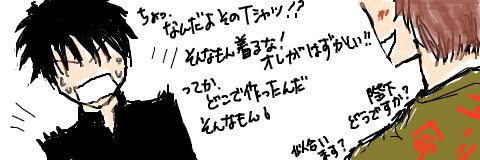 ちょっ、
なんだよそのTシャツ!?
そんなもん着るな!
オレがはずかしい!!
ってか、
どこで作ったんだ
そんなもん!
陛下
どうですか?
似合い
ます?